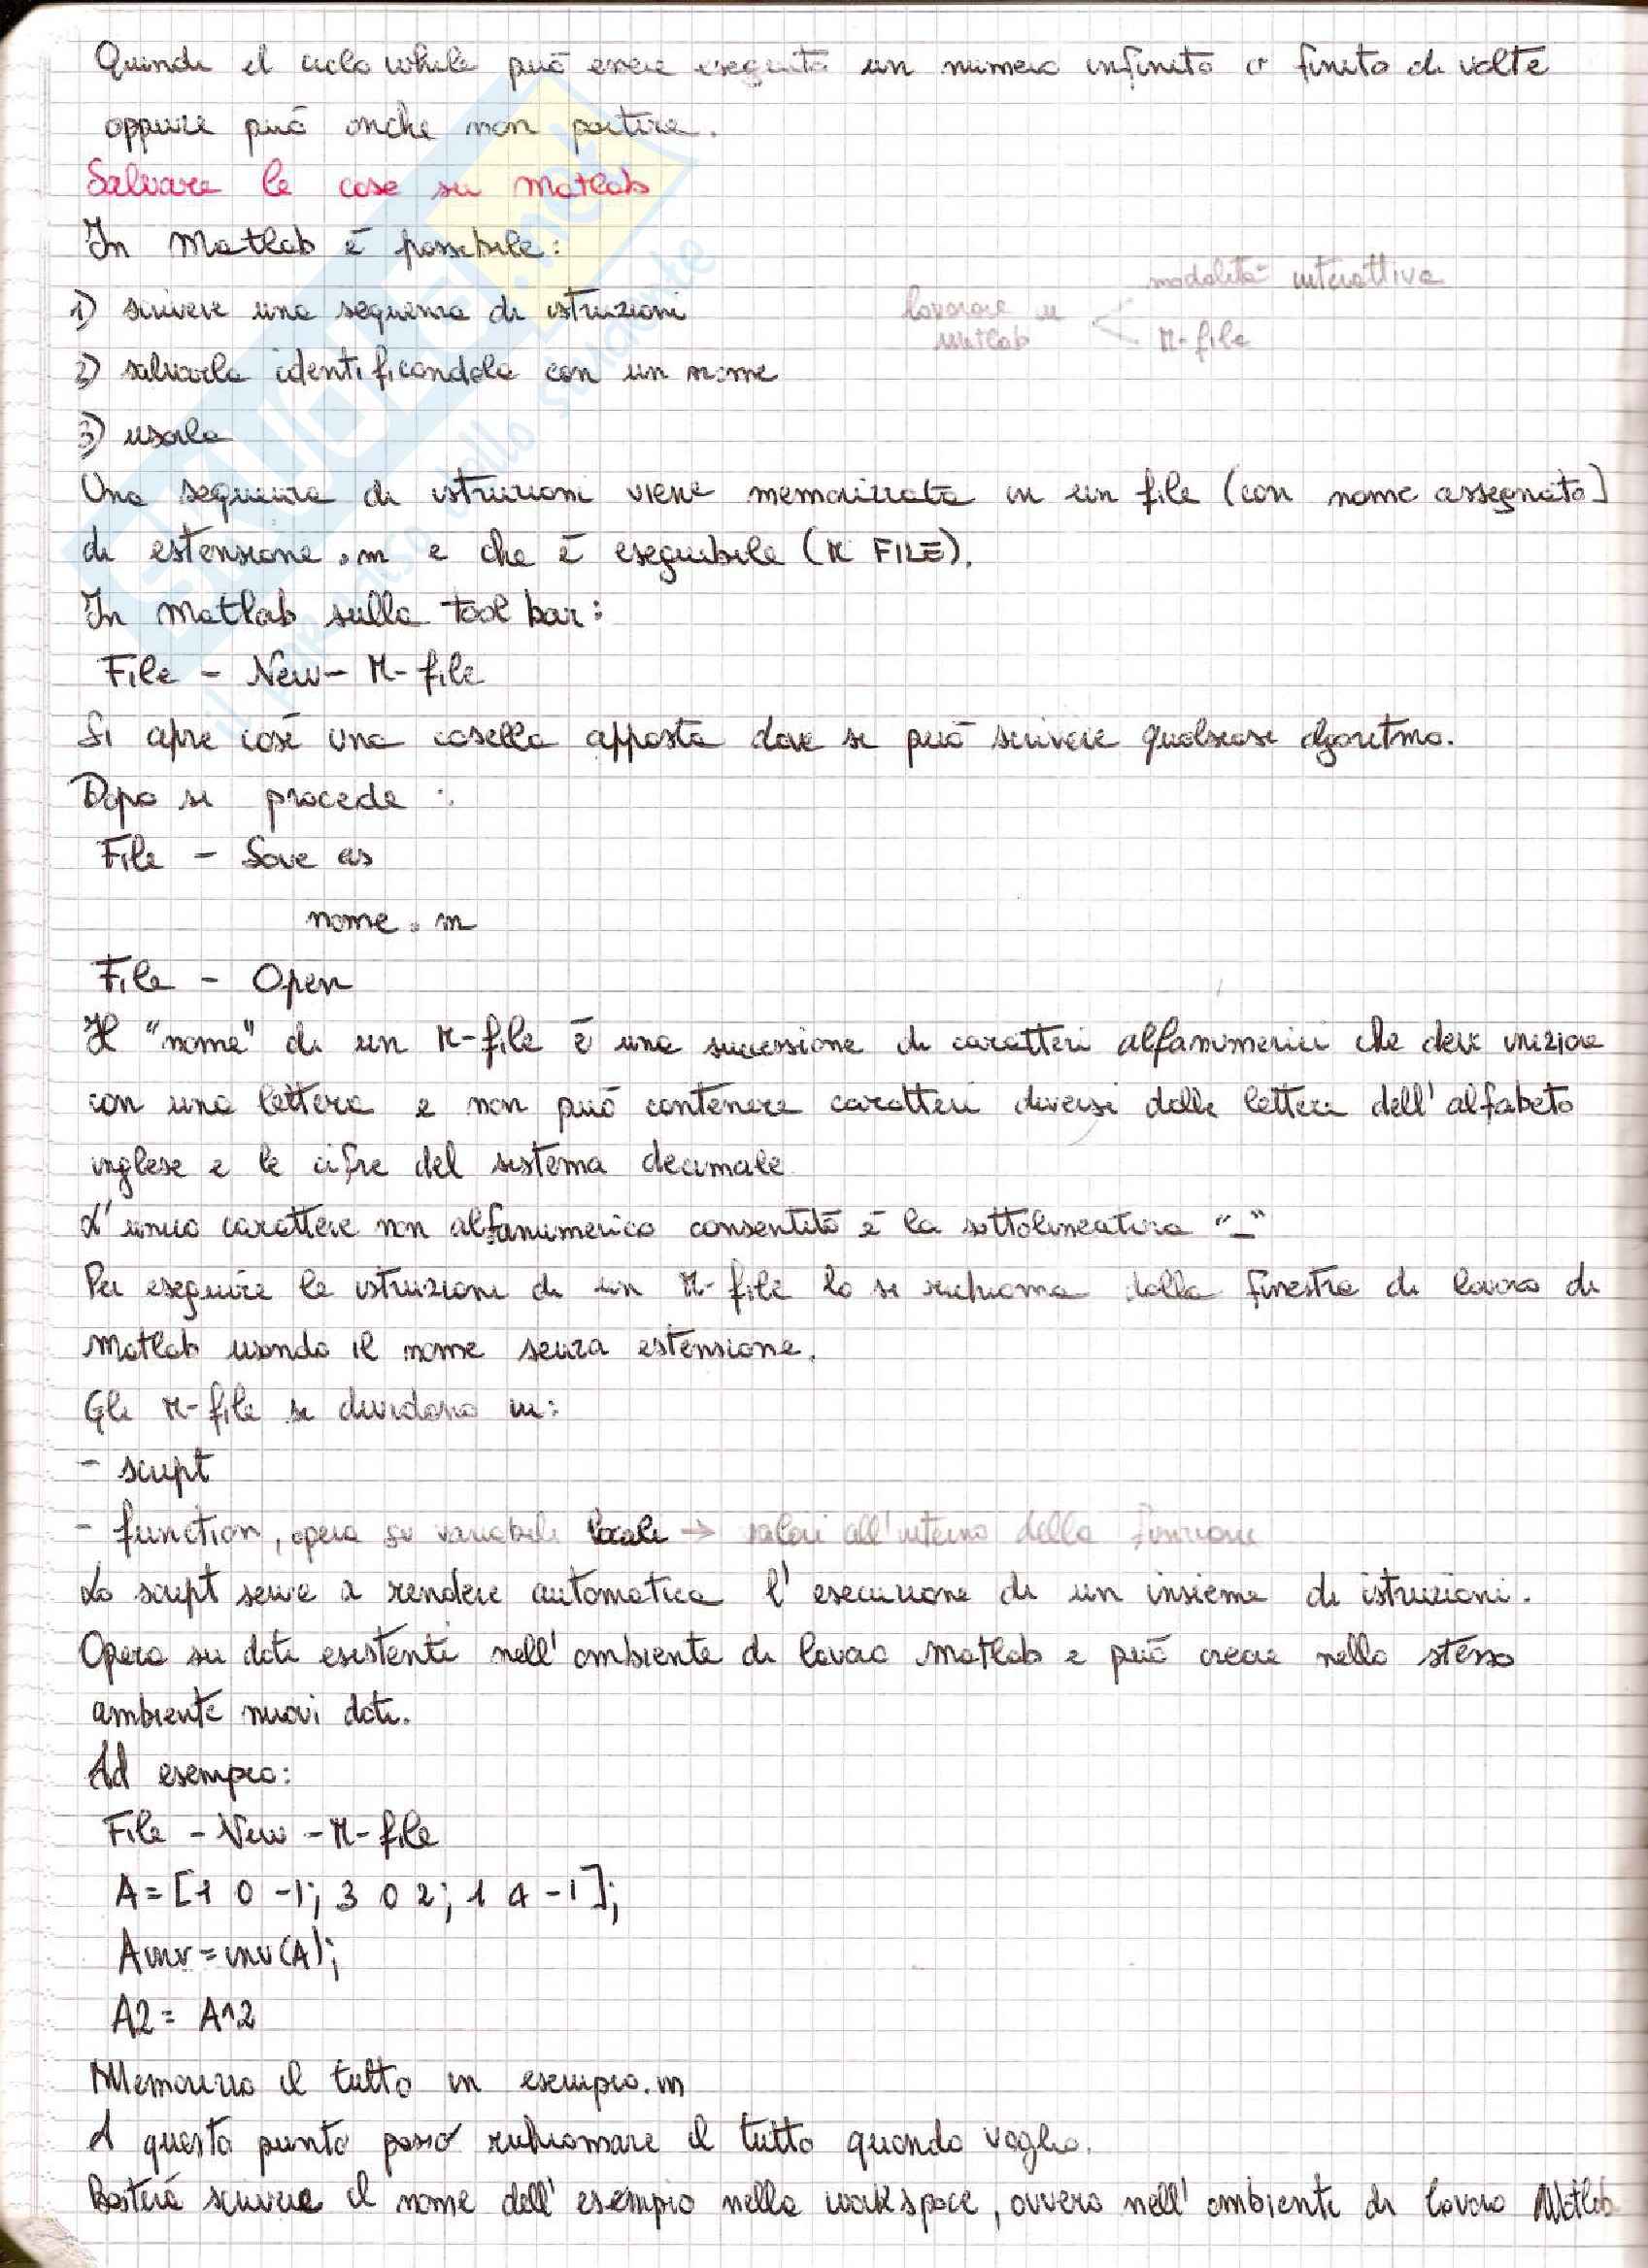 Quindi il ciclo while può essere eseguito un numero infinito o finito di volte
oppure può anche non partire.
Salvare le cose su Matlab
In Matlab è possibile:
1) scrivere una sequenza di istruzioni
lavorare in Matlab
modalità interattiva
M-file
2) salvarla identificandola con un nome
3) usarla
Una sequenza di istruzioni viene memorizzata in un file (con nome assegnato)
di estensione .m e che è eseguibile (M FILE).
In Matlab sulla tool bar:
File - New - M-file
Si apre così una casella apposta dove si può scrivere qualsiasi algoritmo.
Dopo si procede :
File - Save as
nome.m
File - Open
Il "nome" di un M-file è una successione di caratteri alfanumerici che deve iniziare
con una lettera e non può contenere caratteri diversi dalle lettere dell'alfabeto
inglese e le cifre del sistema decimale
L'unico carattere non alfanumerico consentito è la sottolineatura "_"
Per eseguire le istruzioni di un M-file lo si richiama dalla finestra di lavoro di
Matlab usando il nome senza estensione.
Gli M-file si dividono in:
- script
- function, opera su variabili locali → valori all'interno della funzione
Lo script serve a rendere automatica l'esecuzione di un insieme di istruzioni.
Opera su dati esistenti nell'ambiente di lavoro Matlab e può creare nello stesso
ambiente nuovi dati.
Ad esempio:
File - New - M-file
A=[1 0 -1; 3 0 2; 1 4 -1];
Ainv=inv(A);
A2= A^2
Memorizzo il tutto in esempio.m
A questo punto posso richiamare il tutto quando voglio.
Basterà scrivere il nome dell'esempio nella workspace, ovvero nell'ambiente di lavoro Matlab